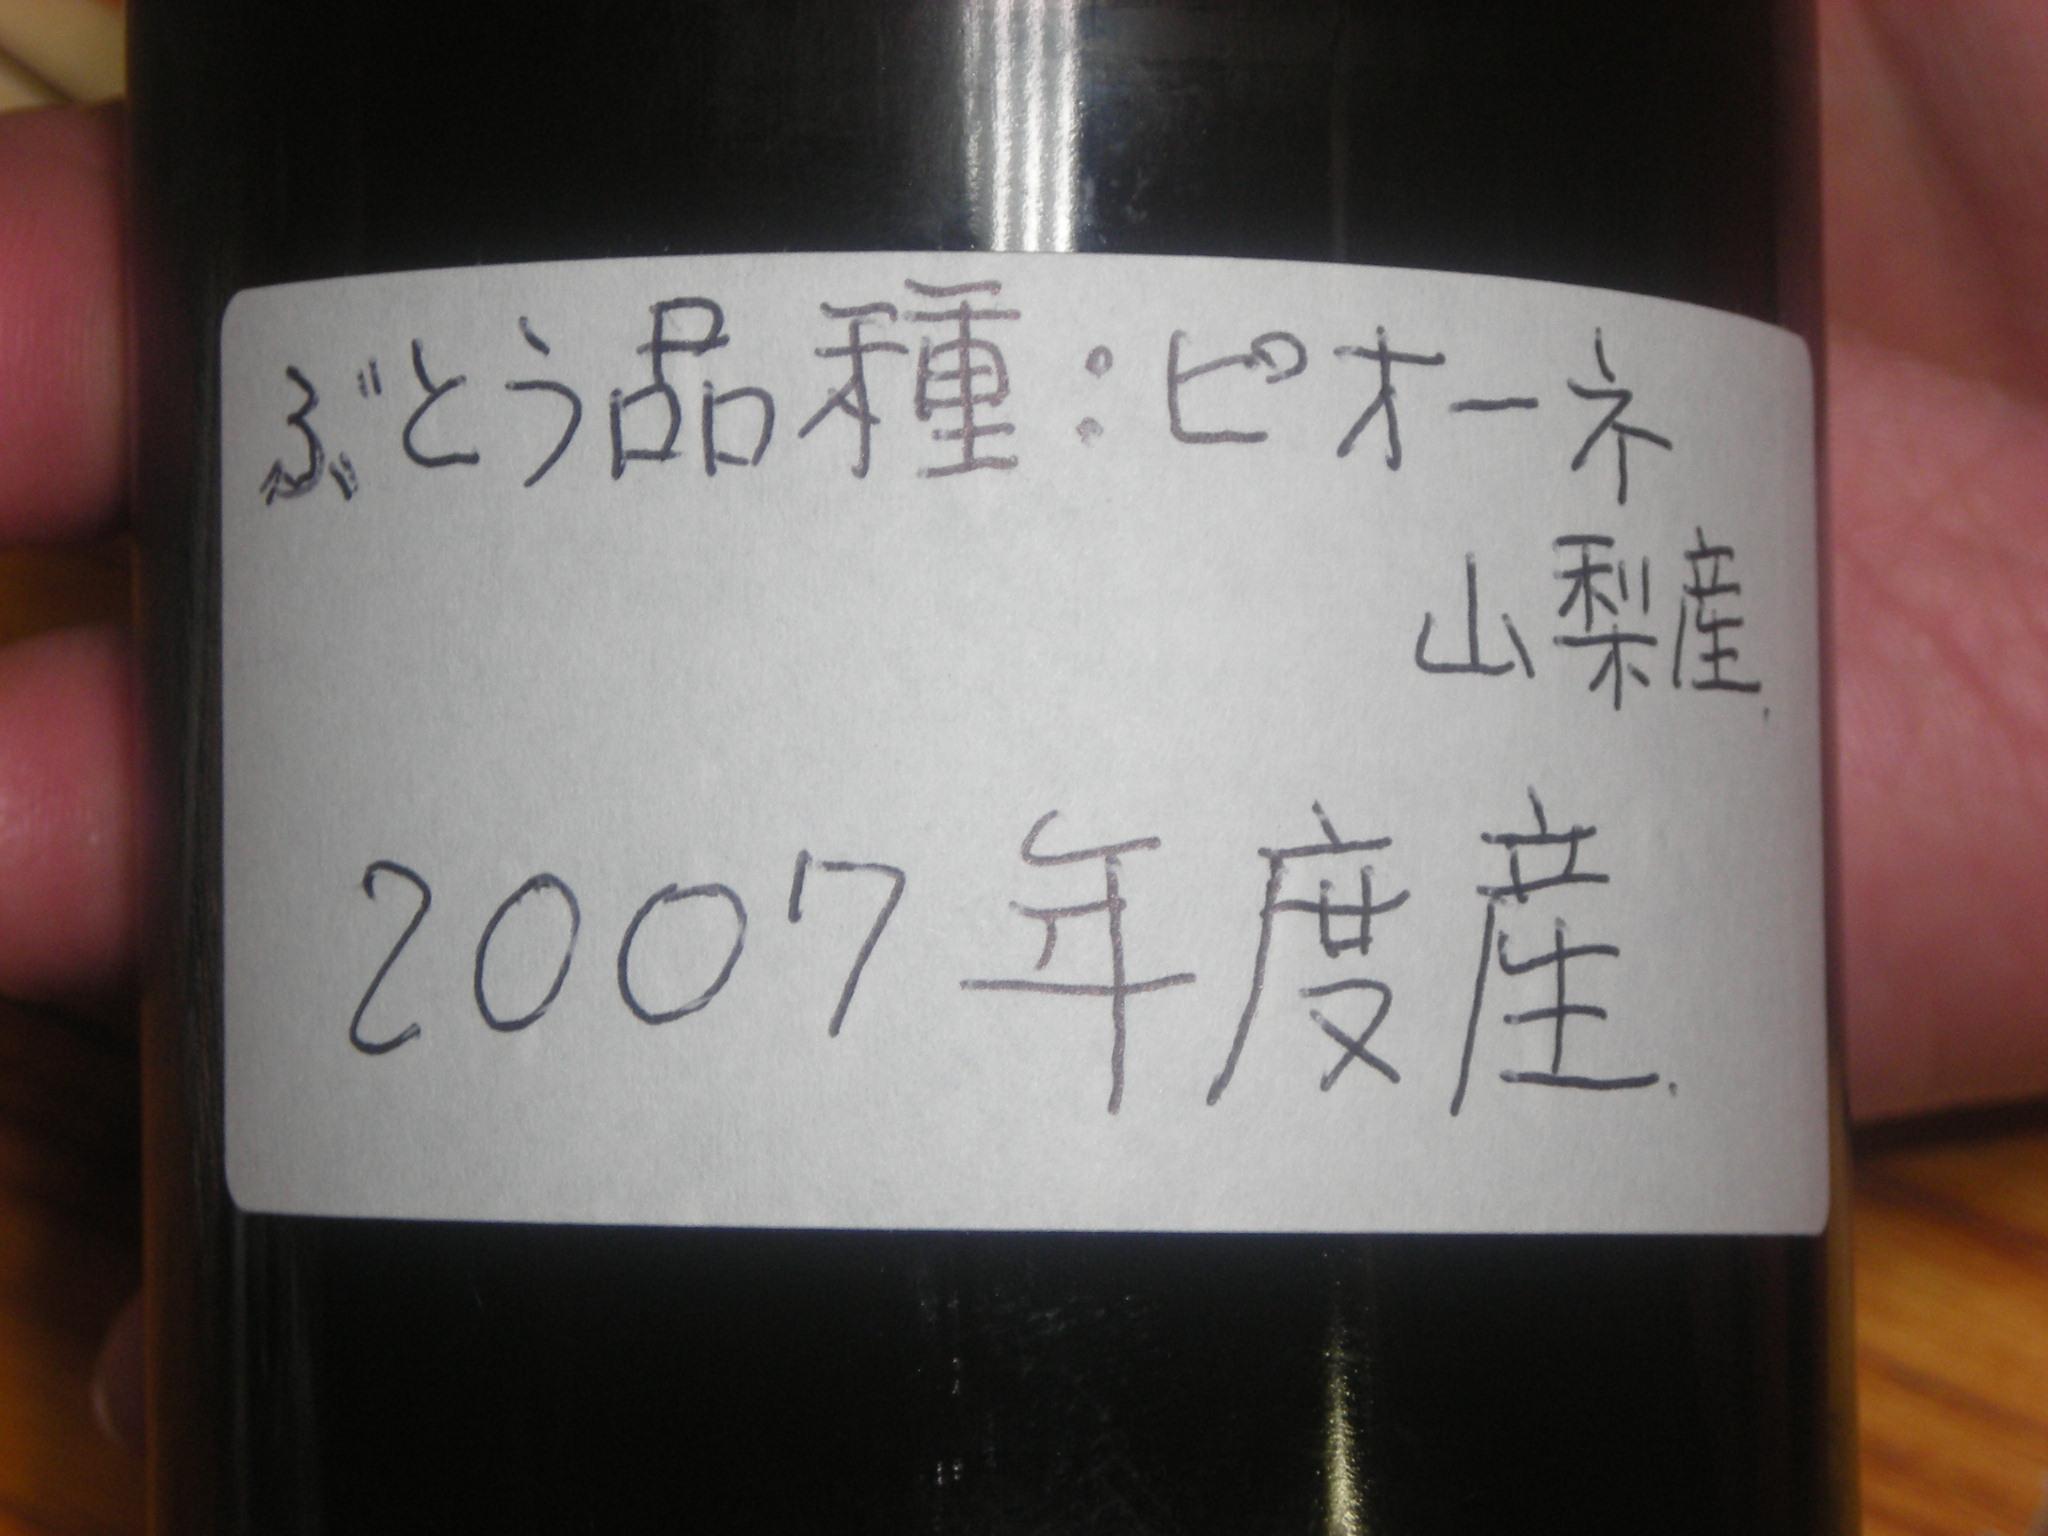 ぶとう品種:ピオーネ
山梨産.
2007年度産.